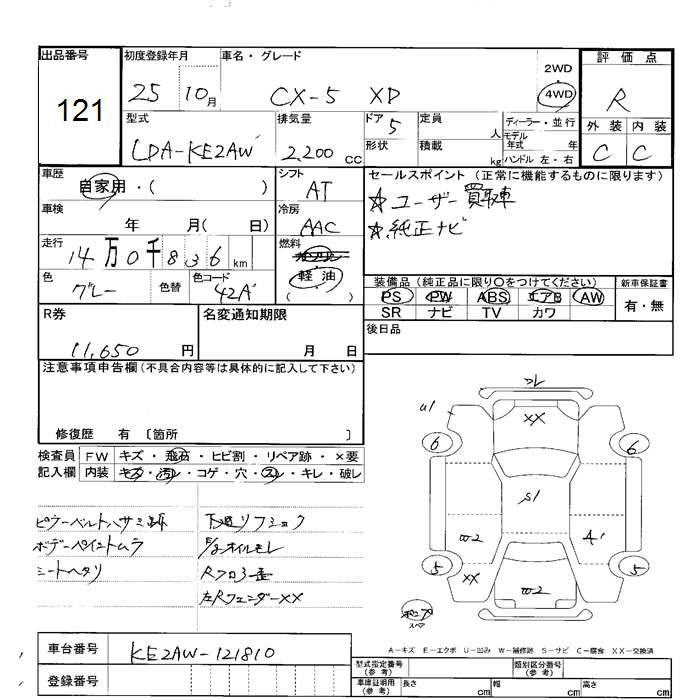 出品番号 初度登録年月 車名・グレード 評価点
121 25 10月 CX-5 XD 2WD 4WD R
型式 排気量 ドア 5 定員 人 ディーラー・並行 外装 内装
LDA-KE2AW 2,200 cc 形状 積載 kg モデル年式 年 ハンドル 左・右 C C
車歴 自家用・( ) シフト AT セールスポイント (正常に機能するものに限ります)
☆ユーザー買取車
☆純正ナビ
車検 年 月( 日) 冷房 AAC
走行 14万0千836 km 燃料 ガソリン 軽油 ( )
色 グレー 色替 色コード 42A
装備品 (純正品に限り○をつけてください) 新車保証書
PS PW ABS エアB AW 有・無
SR ナビ TV カワ
R券 11,650 円 名変通知期限 月 日 後日品
注意事項申告欄(不具合内容等は具体的に記入して下さい)
修復歴 有 〔箇所 〕
検査員記入欄 FW キズ・飛石・ヒビ割・リペア跡・×要
内装 キズ・汚れ・コゲ・穴・スレ・キレ・破レ
ピラーベルトハサミ跡 下廻リフショク
ボデーペイントムラ F/Sオイルモレ
シートヘタリ Rフロ
左RフェンダーXX
U1
XX
6 6
S1
W2 A1
5 5
XX W2
スペア
A-キズ E-エクボ U-凹み W-補修跡 S-サビ C-腐食 XX-交換済
車台番号 KE2AW-121810
登録番号
型式指定番号(参考) 類別区分番号(参考)
車庫証明用(参考) 長さ cm 幅 cm 高さ cm